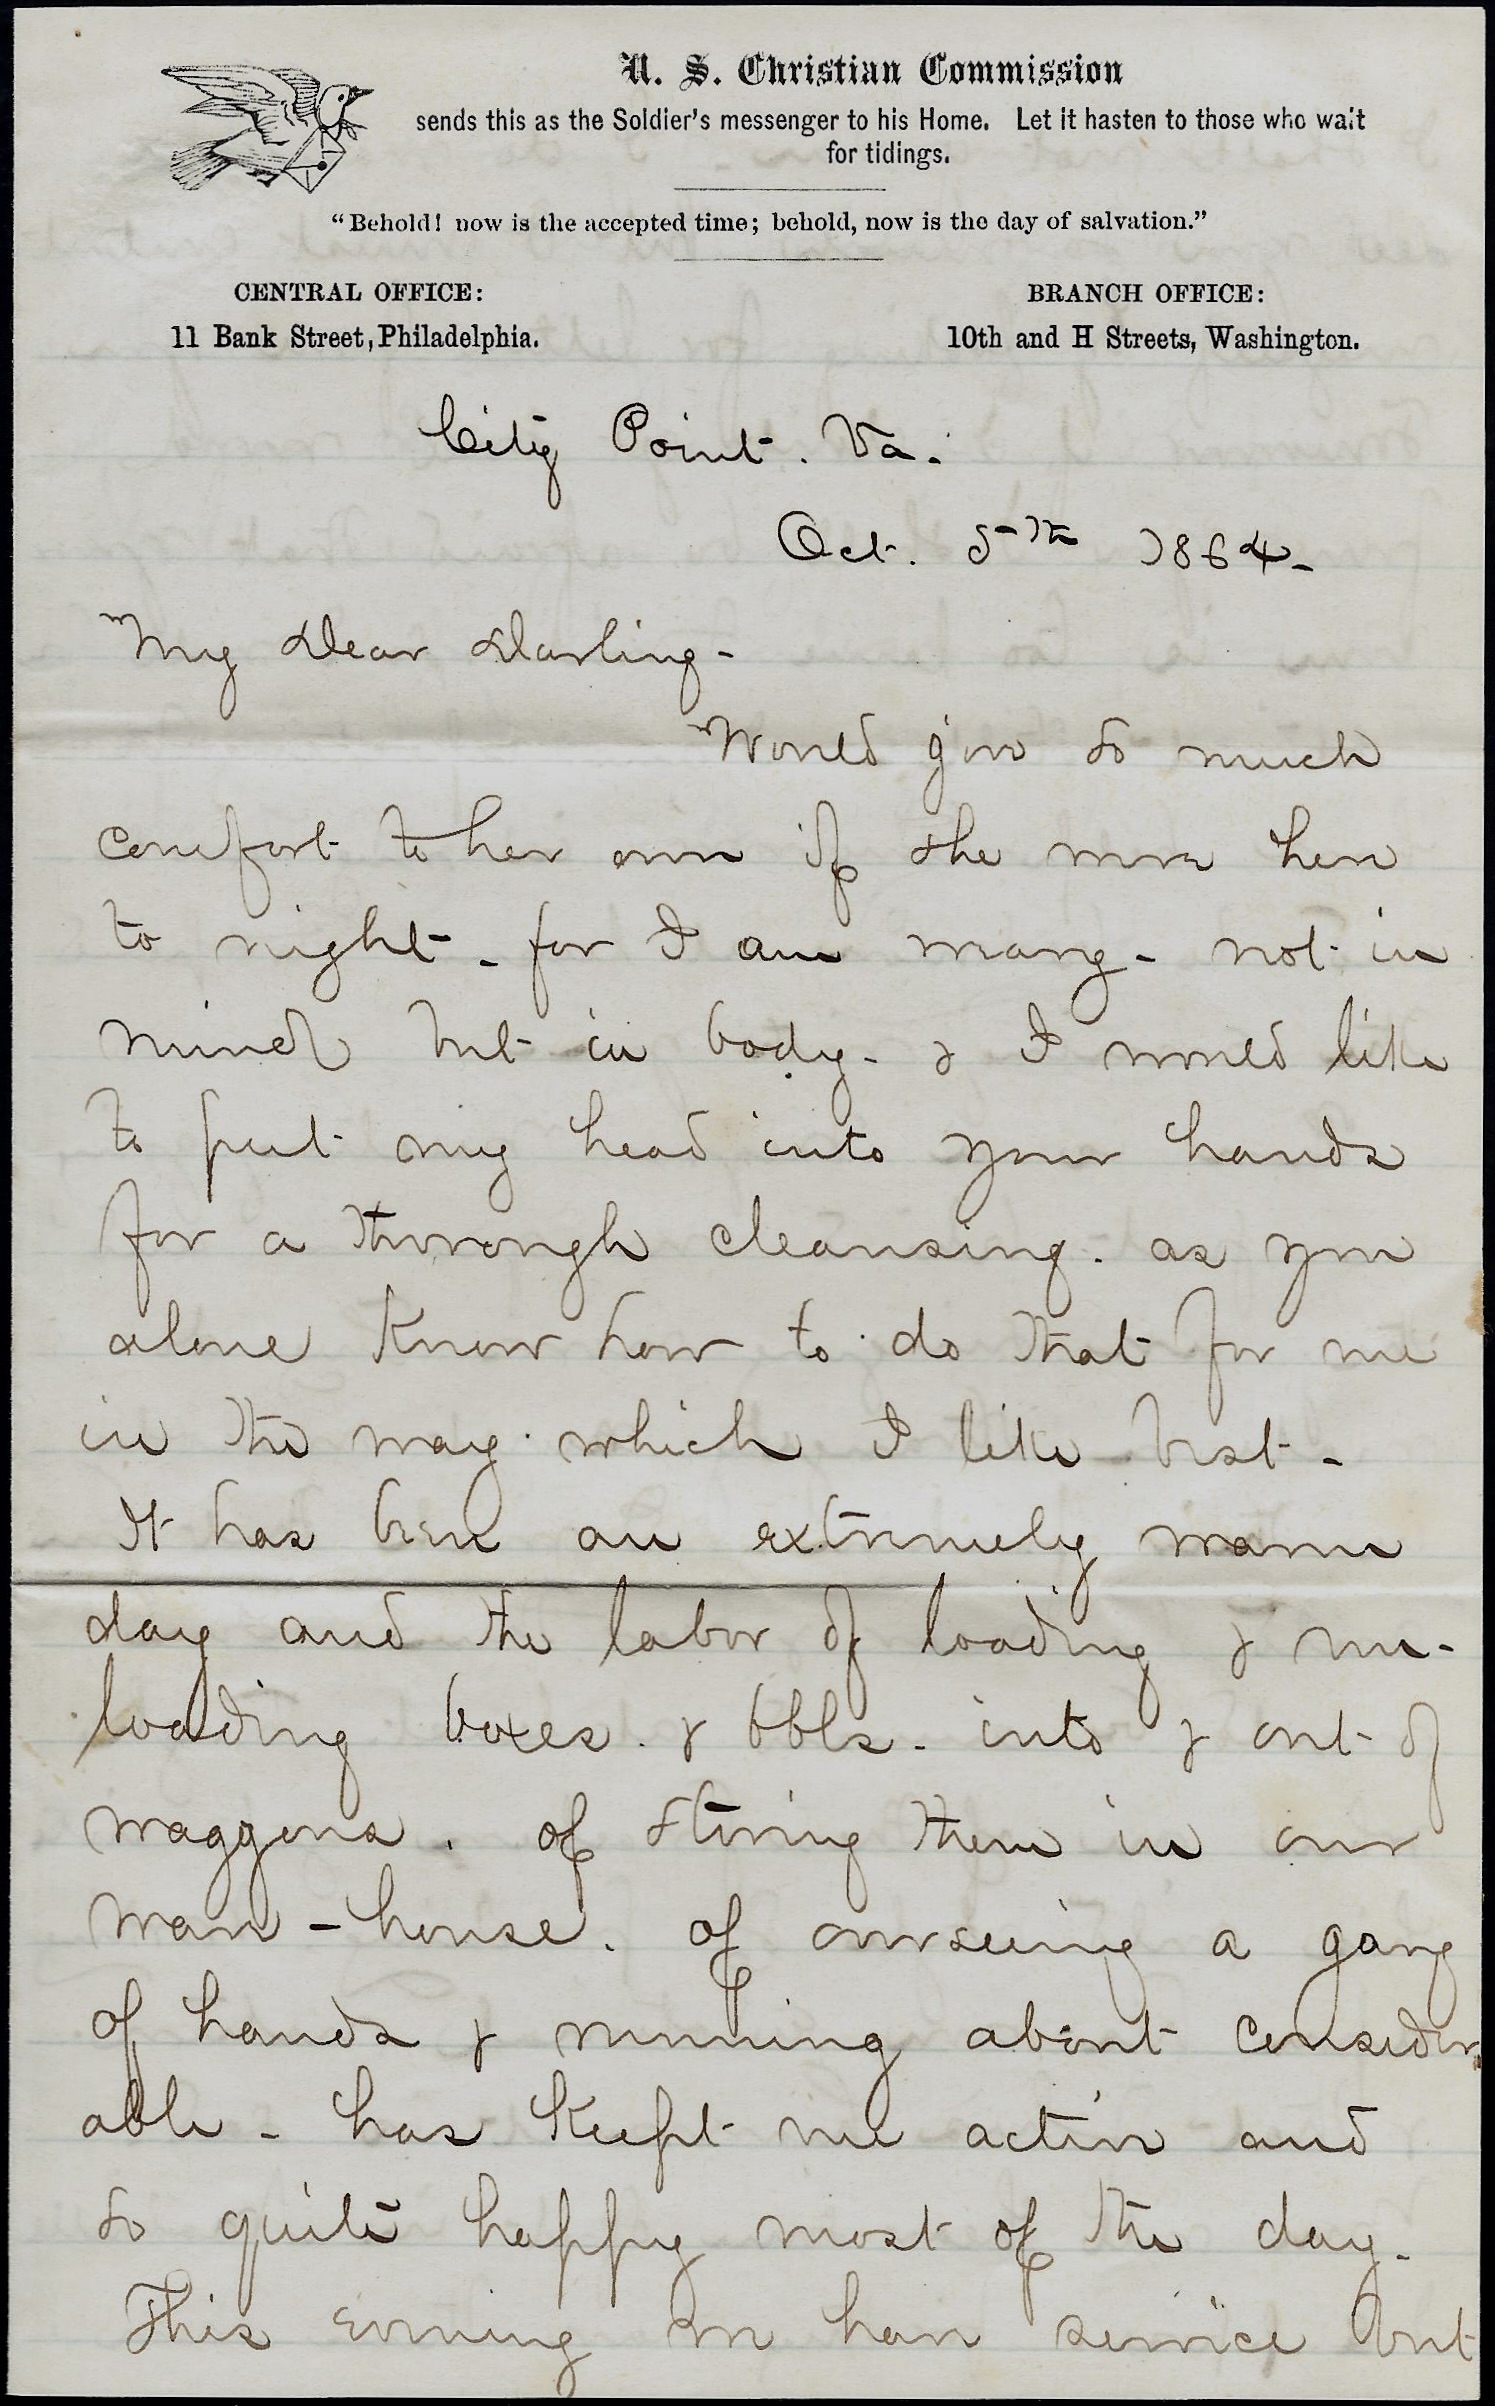 U. S. Christian Commission
sends this as the Soldier's messenger to his Home. Let it hasten to those who wait
for tidings.
"Behold! now is the accepted time; behold, now is the day of salvation."
CENTRAL OFFICE:
11 Bank Street, Philadelphia.
BRANCH OFFICE:
10th and H Streets, Washington.
City Point. Va.
Oct. 5th 1864-
My Dear Darling-
Would give so much
comfort to her own if she were here
to night - for I am weary - not in
mind but in body - & I would like
to put my head into your hands
for a thorough cleansing. as you
alone know how to do that for me
in the way which I like best -
It has been an extremely warm
day and the labor of loading & un-
loading boxes. & bbls. into & out of
waggons. of storing them in our
ware-house. of overseeing a gang
of hands & running about consider-
able - has keept me active and
so quite happy most of the day.
This evening we have service but